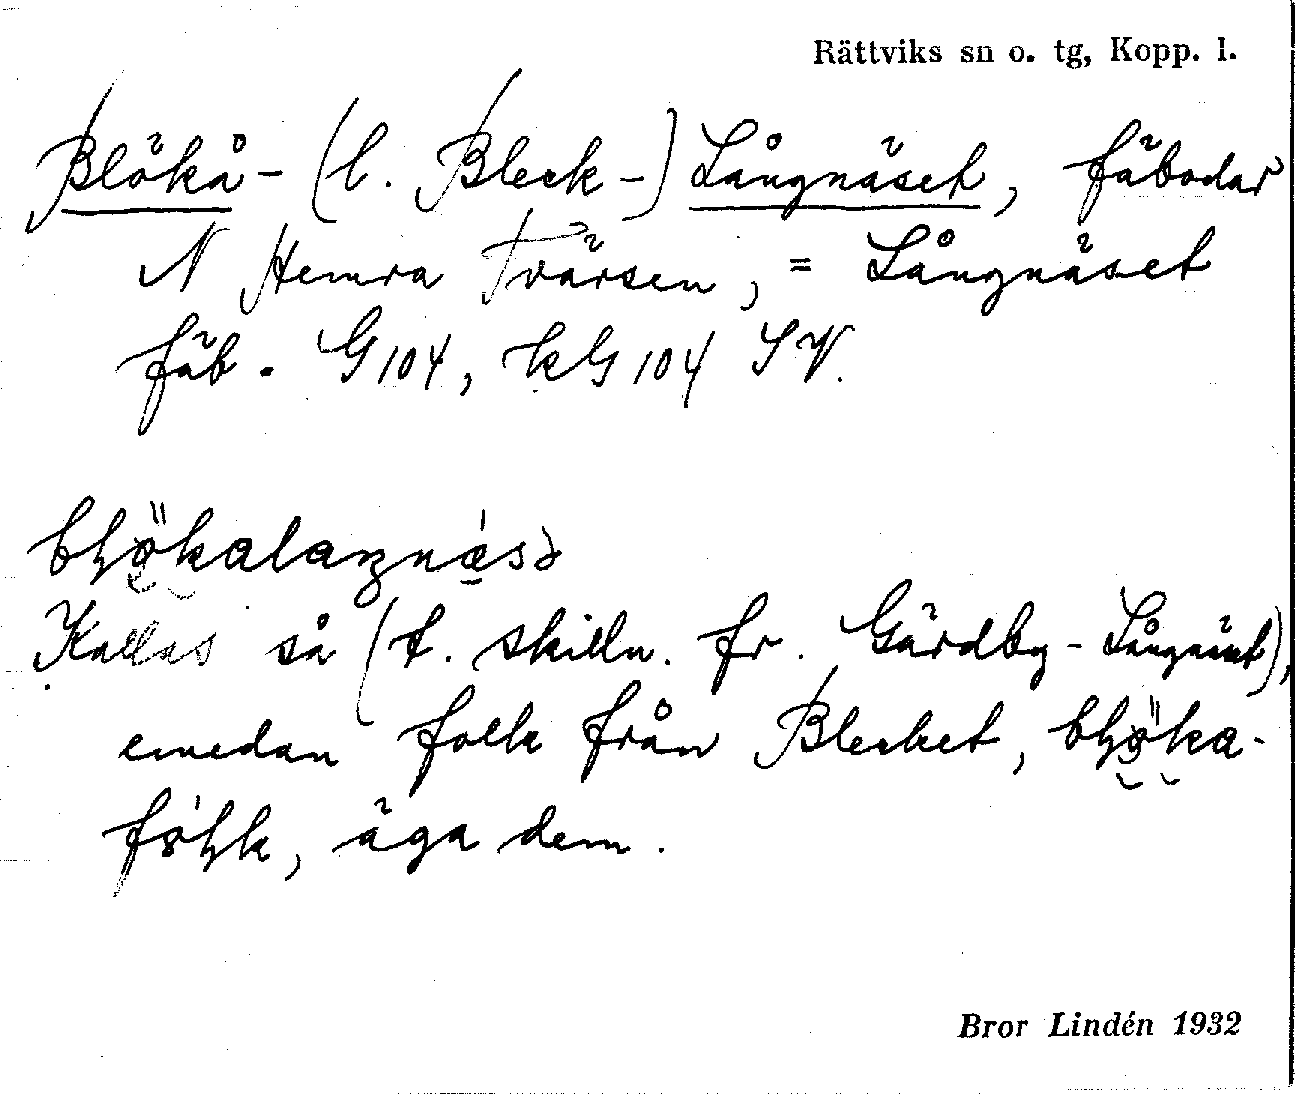 Rättviks sn o. tg, Kopp. l.
Blökå- (l. Bleck-) Långnäset, fäbodar
N Hemra Tvärsen, = Långnäset
fäb. G104, kG104 SV.
Kallas så (t. skilln. fr. Gärdby-Långnäset),
emedan folk från Blecket,
äga dem.
Bror Lindén 1932